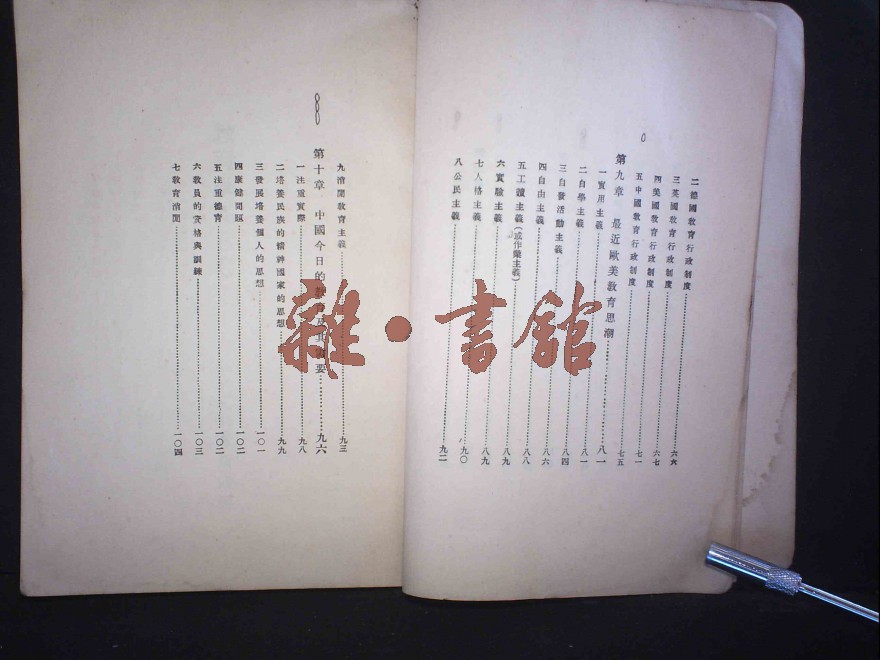 二 德國教育行政制度……六六
三 英國教育行政制度……六七
四 美國教育行政制度……七一
五 中國教育行政制度……七五
第九章 最近歐美教育思潮……八一
一 實用主義……八一
二 自學主義……八四
三 自發活動主義……八六
四 自由主義……八八
五 工讀主義(或作業主義)……八九
六 實驗主義……八九
七 人格主義……九〇
八 公民主義……九二
九 消閒教育主義……九三
第十章 中國今日的教 及其 要……九六
一 注重實際……九八
二 培養民族的精神國家的思想……九九
三 發展培養個人的思想……一〇一
四 康健問題……一〇二
五 注重德育……一〇二
六 教員的資格與訓練……一〇三
七 教育消閒……一〇四
雜·書館